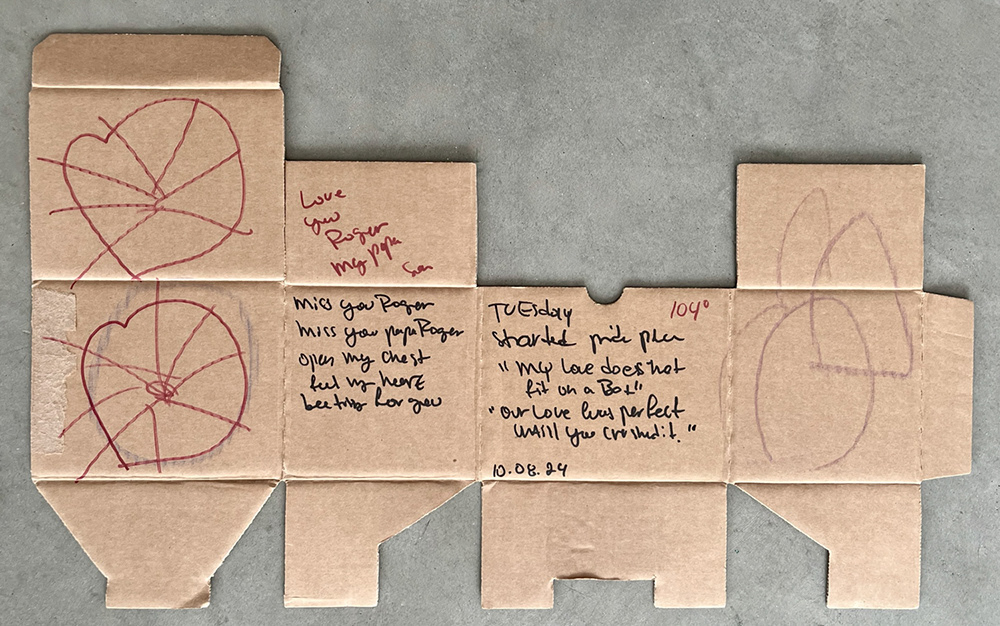 Love
you
Roger
my papa
Miss you Roger
Miss you papa Roger
open my chest
feel my heart
beeting for you
TUEsday 104°
started
"My Love does not
fit in a Box"
"our Love was perfect
until you crushed it."
10.08.24